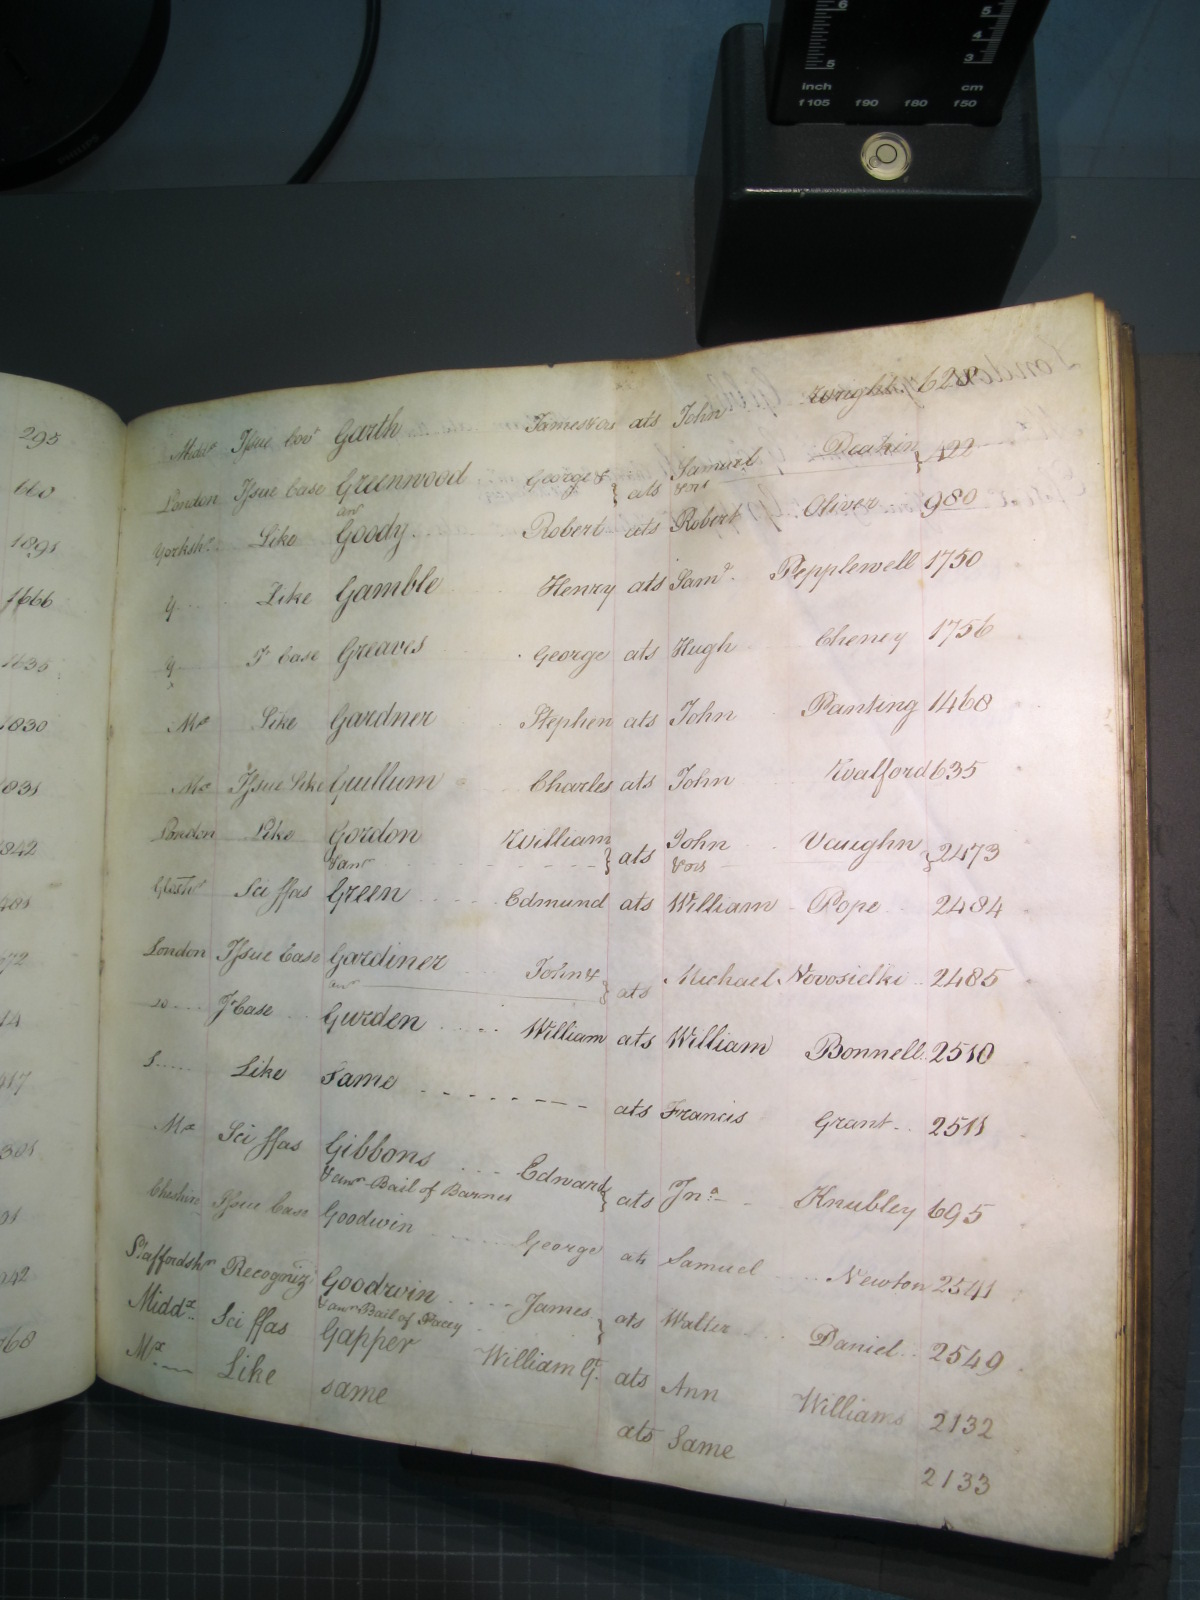 6 5
5 4 3
inch cm
f105 f90 f80 f50
PHILIPS
295
660
1891
1666
1835
1830
831
842
481
672
14
417
301
01
042
768
Midd.x Issue Cov.t Garth James &ors ats John Wright 628
London Issue Case Greenwood George & } ats Samuel Deakin } 422
anr &ors
Yorksh.r Like Goody Robert ats Robert Oliver 980
Y Like Gamble Henry ats Sam.l Pepplewell 1750
Y Js Case Greaves George ats Hugh Cheney 1756
M.x Like Gardner Stephen ats John Panting 1468
M.x Issue Like Gullum Charles ats John Walford 635
London Like Gordon William } ats John Vaughn } 2473
& anr &ors
Glostr Sci ffas Green Edmund ats William Pope 2484
London Issue Case Gardiner John & } ats Michael Novosielki 2485
anr
Do J Case Gurden William ats William Bonnell 2510
S Like Same ats Francis Grant 2511
M.x Sci ffas Gibbons Edward } ats Jn.o Knubley 695
& anr Bail of Barnes
Cheshire Issue Case Goodwin George ats Samuel Newton 2541
Staffordshr Recogniz Goodwin James } ats Walter Daniel 2549
& anr Bail of Stacey
Midd.x Sci ffas Gapper William G. ats Ann Williams 2132
M.x Like same ats Same 2133